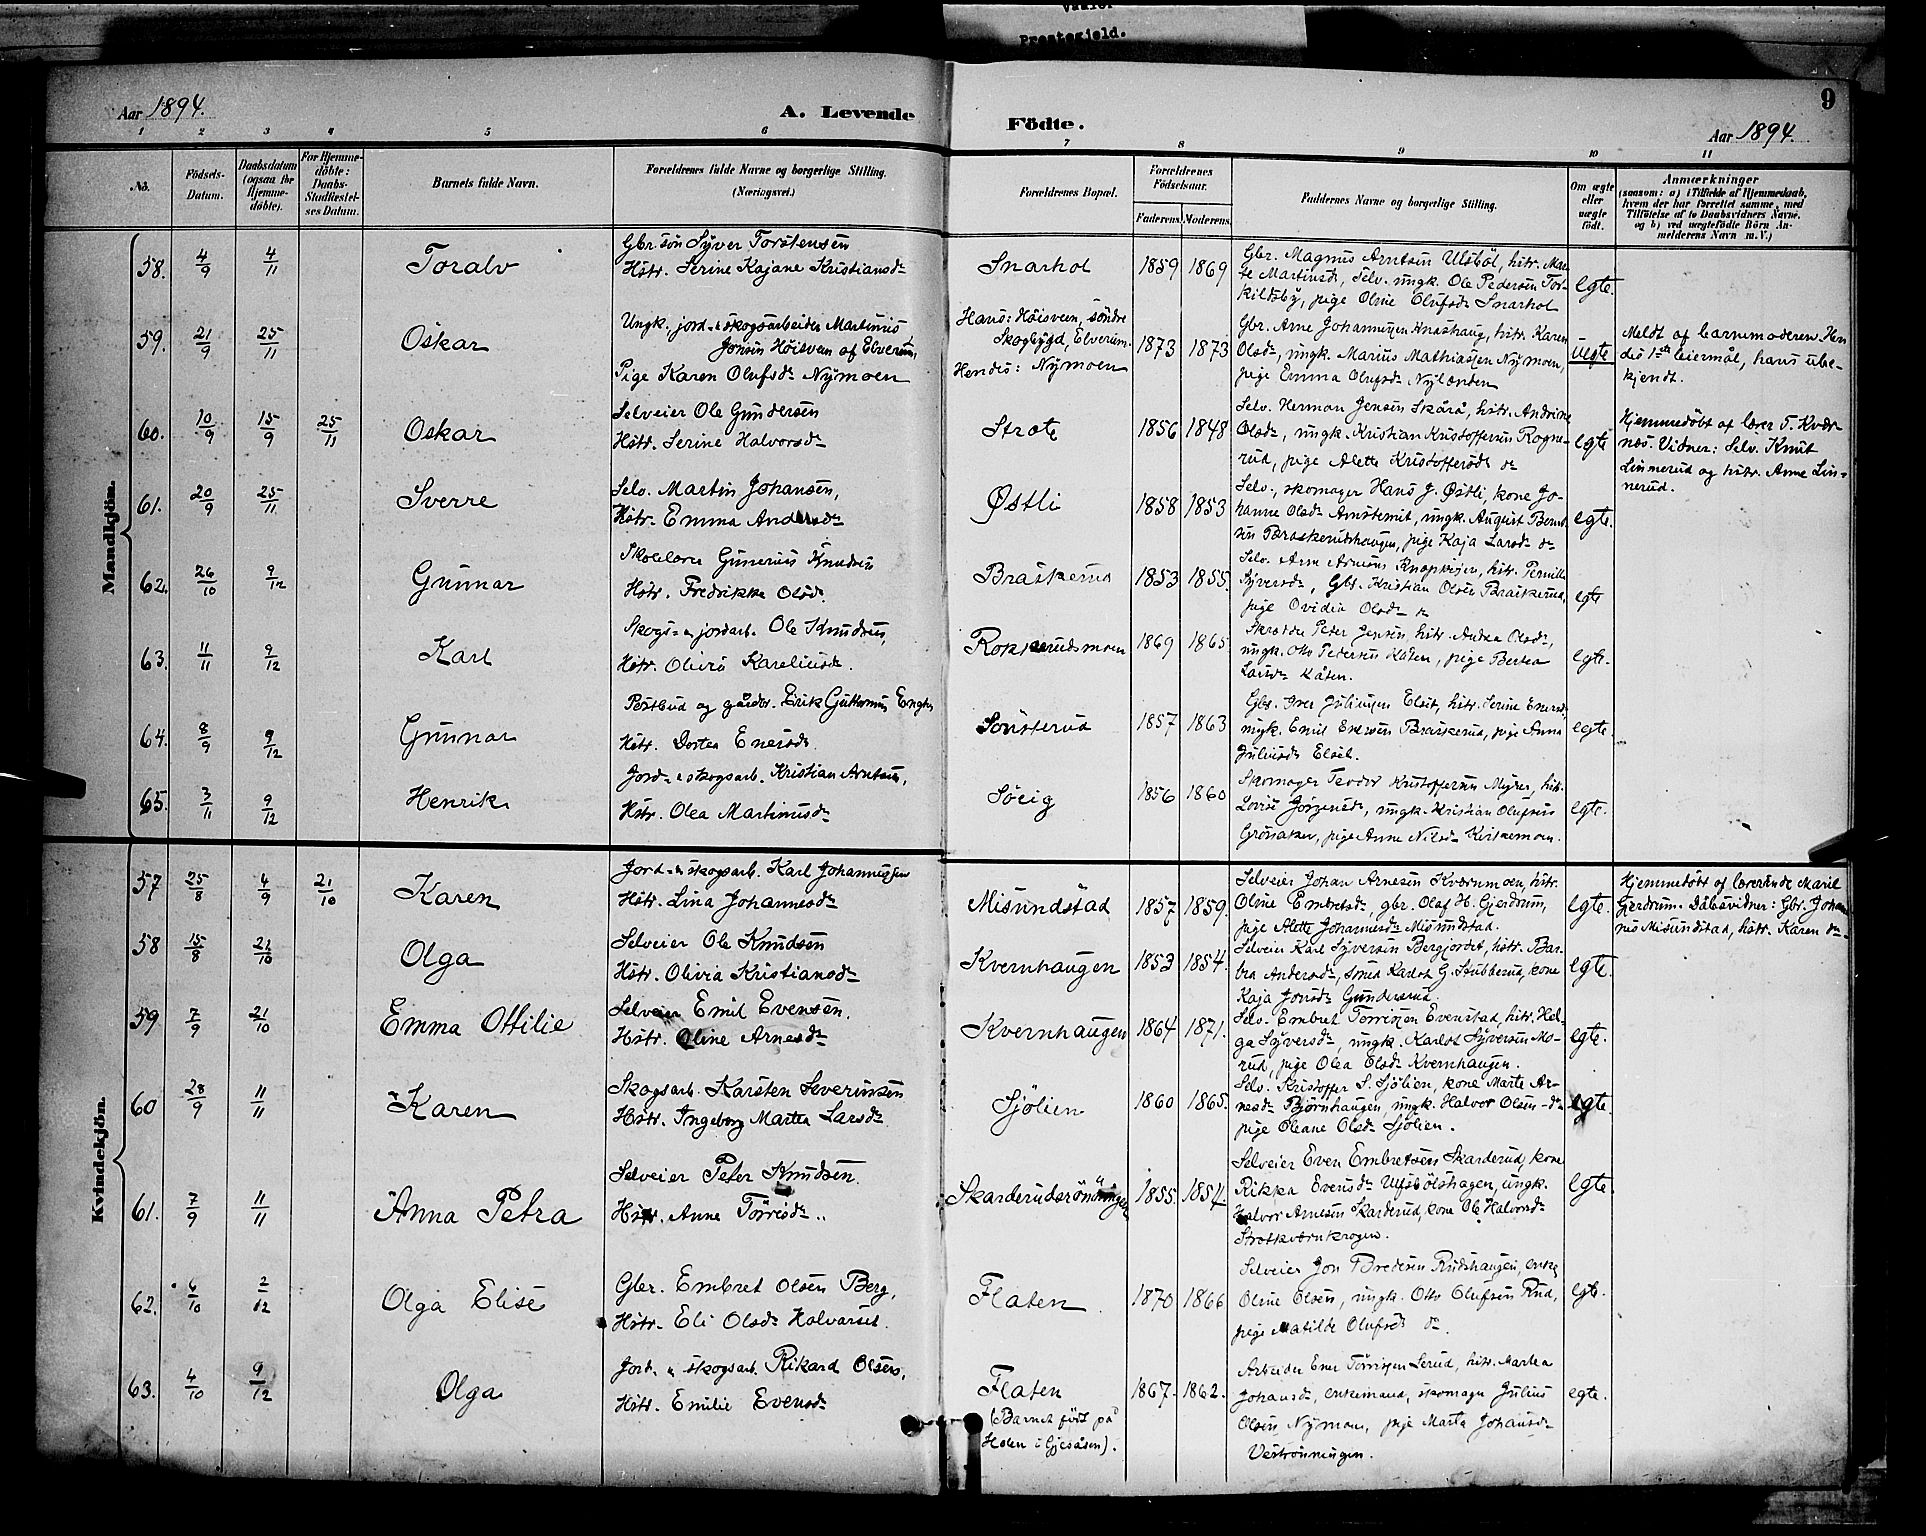 Præstegjeld.
9
Aar 1894.
A. Levende
Födte.
Aar 1894.
1 2 3 4 5 6 7 8 9 10 11
No.
Födsels-
Datum.
Daabsdatum
(ogsaa for
Hjemme-
döbte).
For Hjemme-
döbte:
Daabs-
Stadfæstel-
ses Datum.
Barnets fulde Navn.
Forældrenes fulde Navne og borgerlige Stilling.
(Næringsvei.)
Forældrenes Bopæl.
Forældrenes
Födselsaar.
Faderens. Moderens.
Faddernes Navne og borgerlige Stilling.
Om ægte
eller
uægte
født.
Anmærkninger
(saasom: a) i Tilfælde af Hjemmedaab,
hvem der har forrettet samme, med
Tilföielse af to Daabsvidners Navne.
og b) ved uægtefödte Börn An-
melderens Navn m.V.)
Mandkjön.
58. 4/9 4/11 Toralv
Gbr. søn Syver Torstensen
Hstr. Serine Kajane Kristiansdr
Snarhol 1859 1869
Gbr. Magnus Arntsen Ulsböl, hstr. Mar-
te Martinsdr, Selv. ungk. Ole Pedersen Tor-
kildsby, pige Oline Olufsdr Snarhol
egte.
59. 21/9 25/11 Oskar
Ungk. jord- & skogsarbeider Martinius
Jonsen Höisveen af Elverum,
Pige Karen Olufsdr Nymoen
Hans: Höisveen, söndre
Skogbygd, Elverum.
Hendes: Nymoen
1873 1873
Gbr. Arne Johannesen Knashaug, hstr. Karen
Olsdr, ungk. Marius Mathiassen Nymoen,
pige Emma Olufsdr Nylænden
uegte
Meldt af barnemoderen Hen
des 1ste leiermål, hans ube-
kjendt.
60. 10/9 15/9 25/11 Oskar
Selveier Ole Gundersen
Hstr. Serine Halvorsdr
Strate 1856 1848
Selv. Herman Jensen Skårå, hstr. Andrine
Olsdr, ungk. Kristian Kristoffersen Rogne-
rud, pige Alette Kristoffersdr dr
egte
Hjemmedöbt af lærer T. Kvær-
næs. Vidner: Selv. Knut
Linnerud og hstr. Anne Lin-
nerud.
61. 20/9 25/11 Sverre
Selv. Martin Johansen,
Hstr. Emma Andersdr
Østli 1858 1853
Selv., skomager Hans J. Østli, kone Jo-
hanne Olsdr, ungk. August Bernt-
sen Braskerudshaugen, pige Kaja Larsdr dr
egte.
62. 26/10 9/12 Gunnar
Skolelærer Gunerius Knudsen
Hstr. Fredrikke Olsdr.
Braskerud 1853 1855.
Selv. Arne Arnesen, hstr. Pernille
Syversdr, Gbr. Kristian Olsen Braskerud,
pige Ovidia Olsdr dr
egte
63. 11/11 9/12 Karl
Skogs- & jordarb. Ole Knudsen,
Hstr. Olivia Kareliusdr.
Rokkerudsmoen 1869 1865
Skrædder Peter Jensen, hstr. Andrea Olsdr,
ungk. Otto Pedersen Kåten, pige Bertea
Larsdr Kåten.
egte.
64. 8/9 9/12 Gunnar
Postbud og gårdbr. Erik Guttormsen Engh,
Hstr. Dortea Enersdr.
Sönsterud 1857 1863
Gbr. Iver Juliussen Elset, hstr. Serine Enersdr,
ungk. Emil Eriksen Braskerud, pige Anna
Juliusdr Elset.
egte.
65. 3/11 9/12 Henrik
Jord- & skogsarb. Kristian Arntsen,
Hstr. Olea Martinusdr
Söeig 1856 1860
Skomager Teodor Kristoffersen Myrer, hstr.
Lovise Jörgensdr, ungk. Kristian Olufsen
Grönaker, pige Anne Nilsdr Kirkemoen.
egte.
Kvindekjön.
57 25/8 4/9 21/10 Karen
Jord- & skogsarb. Karl Johannessen
Hstr. Lina Johannesdr
Misundstad 1857 1859.
Selveier Johan Arnesen Kvernmoen, hstr.
Oline Embretsdr, gbr. Olaf H. Gjerdrum,
pige Alette Johannesdr Misundstad.
egte.
Hjemmedöbt af lærerinde Marie
Gjerdrum. Dåbsvidner: Gbr. Johan
nes Misundstad, hstr. Karen dr
58 15/8 21/10 Olga
Selveier Ole Knudsen
Hstr. Olivia Kristiansdr
Kvernhaugen 1853 1854.
Selveier Karl Syversen Bergjordet, hstr. Bar-
bra Andersdr, smed Karlot G. Stubberud, kone
Kaja Jonsdr Gunderrud.
egte.
59 7/9 21/10 Emma Ottilie
Selveier Emil Evensen.
Hstr. Oline Arnesdr
Kvernhaugen 1864 1871.
Selv. Embret Torrissen Evenstad, hstr. Hel-
ga Syversdr, ungk. Karlot Syversen Mo-
rud, pige Olea Olsdr Kvernhaugen.
egte.
60 28/9 11/11 Karen
Skogsarb. Karsten Severinsen
Hstr. Ingeborg Martea Larsdr
Sjölien 1860 1865.
Selv. Kristoffer S. Sjölien, kone Marte Ar-
nesdr Björnhaugen, ungk. Halvor Olsen - dr
pige Oleane Olsdr Sjölien.
egte.
61. 7/9 11/11 Anna Petra
Selveier Peter Knudsen
Hstr. Anne Törresdr
Skarderudsrönningen 1855. 1854.
Selveier Even Embretsen Skarderud, kone
Rikka Evensdr Ulfsbölshagen, ungk.
Halvor Arnesen Skarderud, kone Ole Halvorsdr
Stratkværnkrogen.
egte.
62. 6/10 2/12 Olga Elise
Gbr. Embret Olsen Berg,
Hstr. Eli Olsdr Halvarset.
Flaten 1870 1866
Selveier Jon Bredesen Rudshaugen, enke
Oline Olsen, ungk. Otto Olufsen Rud,
pige Matilde Olufsdr dr.
egte.
63. 4/10 9/12 Olga
Jord- & skogsarb. Rikard Olsen,
Hstr. Emilie Evensdr
Flaten
(Barnet født på
Holen i Gjesåsen).
1867. 1862.
Arbeider Ener Törrissen Lerud, hstr. Martea
Johansdr, enkemand, skomager Julius
Olsen Nymoen, pige Marta Johansdr
Veströnningen.
egte.